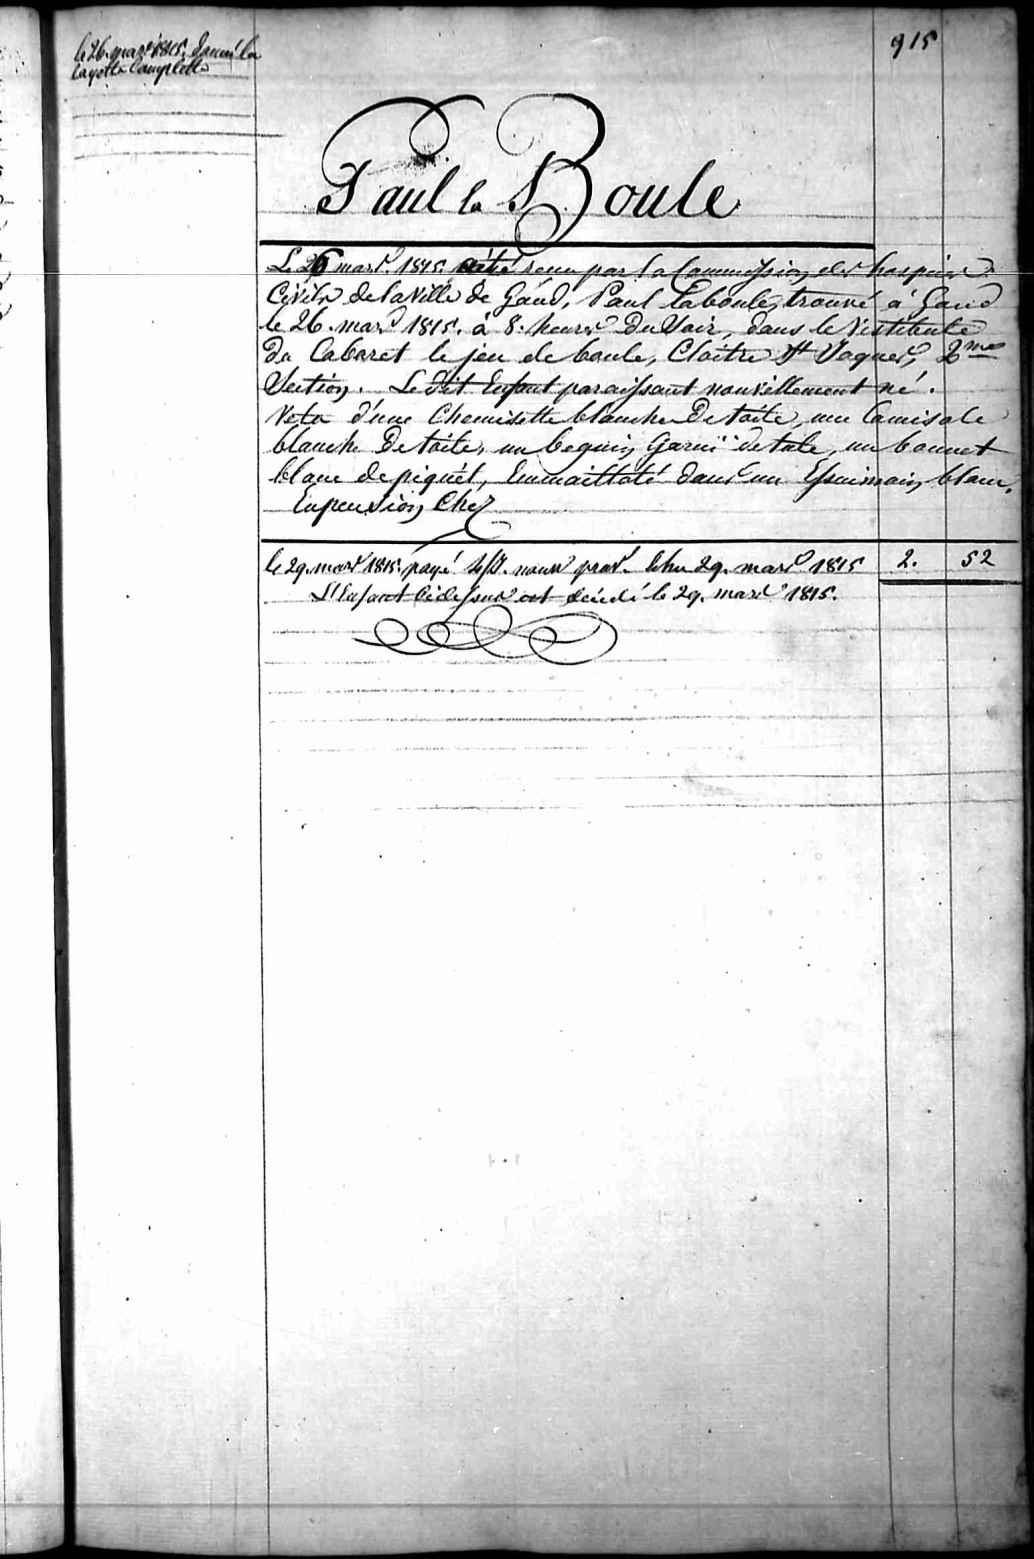 915
le 26. mars 1815. donné la
layette Complette
Paul la Boule
Le 26 mars. 1815. a été reçu par la Commission des hospices
Civils de la Ville de Gand, Paul Laboule, trouvé à Gand
le 26. mars 1815. à 8. heures Du Soir, dans le Vestibule
du Cabaret le jeu de boule, Cloitre St Jaques, 2me
Section. Le Dit Enfant paraissant nouvellement né.
Vetu d'une Chemisette blanche De toile, une Camisole
blanche De toile, un beguin garni de tule, un bonnet
blanc de piquét, Emmaillotté dans un Essuimain blanc.
En pension Chez
le 29. mars 1815. payé nour prov. 29. mars 1815 2. 52
L'Enfant Cidessus est décédé le 29. mars 1815.